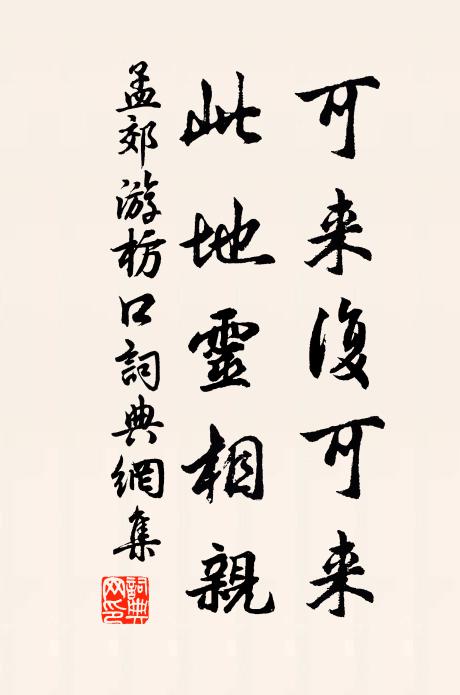 可来復可来
此地靈相親
孟郊游枋口詞典網集
詞典网印